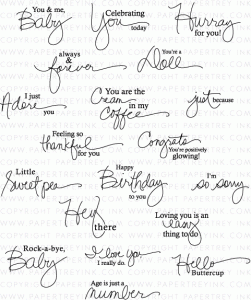 You & me,
Baby
Celebrating
You
today
Hurray
for you!
always
&
forever
You're a
Doll
I just
Adore
you
You are the
Cream
in my
Coffee
just because
Feeling so
thankful
for you
Congrats
You're positively
glowing!
Little
Sweet pea
Happy
Birthday
to you
I'm
so sorry
Hey
there
Loving you is an
easy
thing to do
Rock-a-bye,
Baby
I love you
I really do.
Hello
Buttercup
Age is just a
number